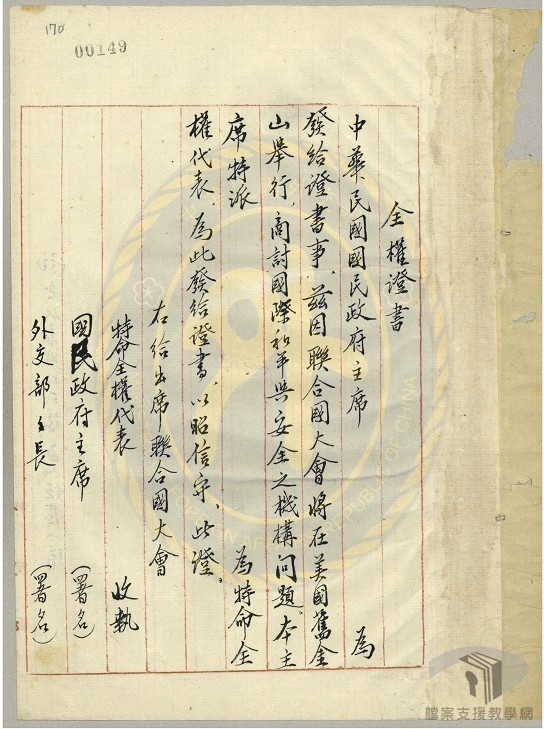 170
00149
全權證書
中華民國國民政府主席 為
發給證書事，茲因聯合國大會將在美國舊金
山舉行，商討國際和平與安全之機構問題，本主
席特派 為特命全
權代表，為此發給證書，以昭信守，此證。
右給出席聯合國大會
特命全權代表 收執
國民政府主席 （署名）
外交部部長 （署名）
檔案支援教學網